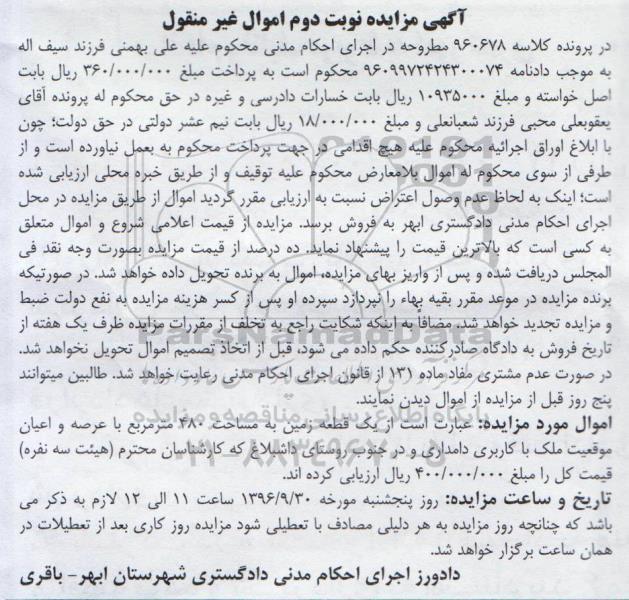 آگهی مزایده نوبت دوم اموال غیر منقول
در پرونده کلاسه ۹۶۰۶۷۸ مطروحه در اجرای احکام مدنی محکوم علیه علی بهمنی فرزند سیف اله
به موجب دادنامه ۹۶۰۹۹۷۲۴۲۴۳۰۰۰۷۴ محکوم است به پرداخت مبلغ ۳۶۰/۰۰۰/۰۰۰ ریال بابت
اصل خواسته و مبلغ ۱۰۹۳۵۰۰۰ ریال بابت خسارات دادرسی و غیره در حق محکوم له پرونده آقای
یعقوبعلی محبی فرزند شعبانعلی و مبلغ ۱۸/۰۰۰/۰۰۰ ریال بابت نیم عشر دولتی در حق دولت؛ چون
با ابلاغ اوراق اجرائیه محکوم علیه هیچ اقدامی در جهت پرداخت محکوم به بعمل نیاورده است و از
طرفی از سوی محکوم له اموال بلامعارض محکوم علیه توقیف و از طریق خبره محلی ارزیابی شده
است؛ اینک به لحاظ عدم وصول اعتراض نسبت به ارزیابی مقرر گردید اموال از طریق مزایده در محل
اجرای احکام مدنی دادگستری ابهر به فروش برسد. مزایده از قیمت اعلامی شروع و اموال متعلق
به کسی است که بالاترین قیمت را پیشنهاد نماید. ده درصد از قیمت مزایده بصورت وجه نقد فی
المجلس دریافت شده و پس از واریز بهای مزایده، اموال به برنده تحویل داده خواهد شد. در صورتیکه
برنده مزایده در موعد مقرر بقیه بهاء را نپردازد سپرده او پس از کسر هزینه مزایده به نفع دولت ضبط
و مزایده تجدید خواهد شد. مضافاً به اینکه شکایت راجع به تخلف از مقررات مزایده ظرف یک هفته از
تاریخ فروش به دادگاه صادرکننده حکم داده می شود، قبل از اتخاذ تصمیم اموال تحویل نخواهد شد.
در صورت عدم مشتری مفاد ماده ۱۳۱ از قانون اجرای احکام مدنی رعایت خواهد شد. طالبین میتوانند
پنج روز قبل از مزایده از اموال دیدن نمایند.
اموال مورد مزایده: عبارت است از یک قطعه زمین به مساحت ۴۸۰ مترمربع با عرصه و اعیان
موقعیت ملک با کاربری دامداری و در جنوب روستای داشبلاغ که کارشناسان محترم (هیئت سه نفره)
قیمت کل را مبلغ ۴۰۰/۰۰۰/۰۰۰ ریال ارزیابی کرده اند.
تاریخ و ساعت مزایده: روز پنجشنبه مورخه ۱۳۹۶/۹/۳۰ ساعت ۱۱ الی ۱۲ لازم به ذکر می
باشد که چنانچه روز مزایده به هر دلیلی مصادف با تعطیلی شود مزایده روز کاری بعد از تعطیلات در
همان ساعت برگزار خواهد شد.
دادورز اجرای احکام مدنی دادگستری شهرستان ابهر- باقری
ParsNamadData
پایگاه اطلاع رسانی مناقصه و مزایده
۰۲۱-۸۸۳۴۹۶۷۰-۵